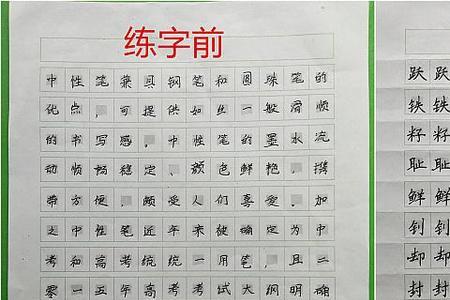 练字前
中性笔兼具钢笔和圆珠笔的
优点，可提供如丝一般滑顺
的书写感，中性笔的墨水流
动顺畅稳定、颜色鲜艳、携
带方便，颇受人们喜爱，加
之中性笔近年来被确定为中
考和高考统统一用笔，且二
零一五年高考考试大纲明确
跃跃
铁铁
籽籽
耻耻
鲜鲜
钊钊
却却
封封